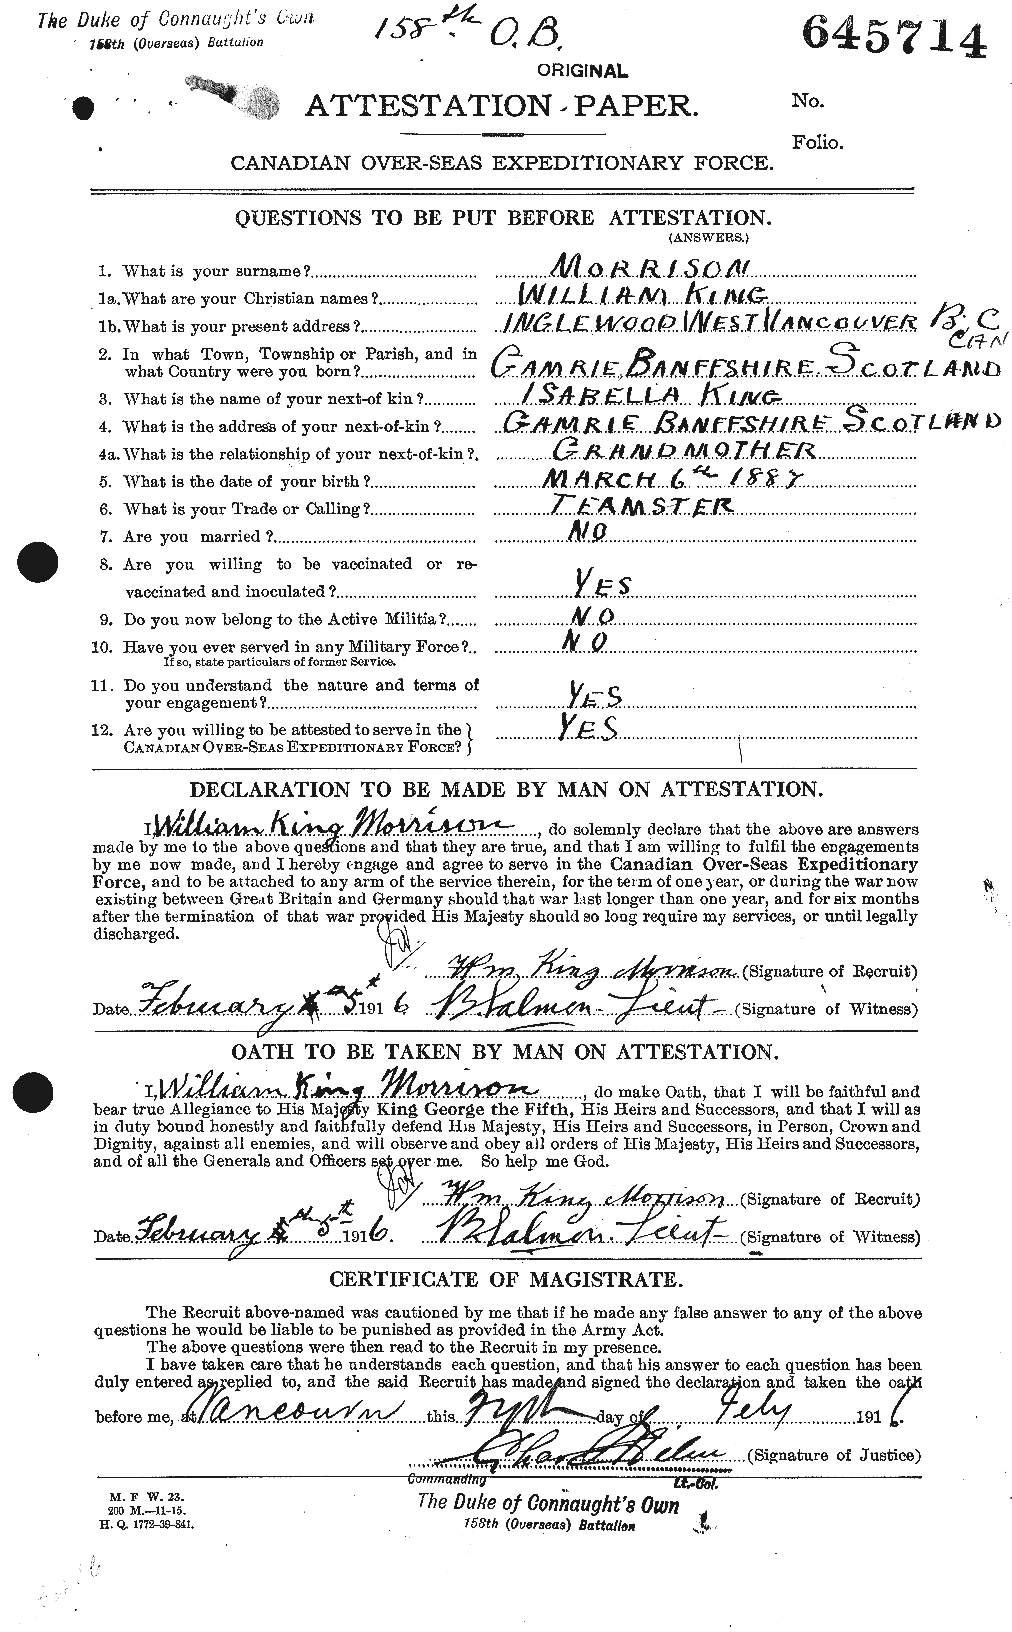 The Duke of Connaught's Own
158th (Overseas) Battalion
158th. O.B.
645714
ORIGINAL
ATTESTATION PAPER.
No.
Folio.
CANADIAN OVER-SEAS EXPEDITIONARY FORCE.
QUESTIONS TO BE PUT BEFORE ATTESTATION.
(ANSWERS.)
1. What is your surname? MORRISON
1a. What are your Christian names? WILLIAM KING
1b. What is your present address? INGLEWOOD WEST VANCOUVER B.C
CAN
2. In what Town, Township or Parish, and in
what Country were you born? GAMRIE, BANFFSHIRE. SCOTLAND
3. What is the name of your next-of kin? ISABELLA KING
4. What is the address of your next-of-kin? GAMRIE BANFFSHIRE SCOTLAND
4a. What is the relationship of your next-of-kin? GRANDMOTHER
5. What is the date of your birth? MARCH 6th 1887
6. What is your Trade or Calling? TEAMSTER
7. Are you married? NO
8. Are you willing to be vaccinated or re-
vaccinated and inoculated? YES
9. Do you now belong to the Active Militia? NO
10. Have you ever served in any Military Force?.. NO
If so, state particulars of former Service.
11. Do you understand the nature and terms of
your engagement? YES
12. Are you willing to be attested to serve in the }
CANADIAN OVER-SEAS EXPEDITIONARY FORCE? } YES
DECLARATION TO BE MADE BY MAN ON ATTESTATION.
I, William King Morrison, do solemnly declare that the above are answers
made by me to the above questions and that they are true, and that I am willing to fulfil the engagements
by me now made, and I hereby engage and agree to serve in the Canadian Over-Seas Expeditionary
Force, and to be attached to any arm of the service therein, for the term of one year, or during the war now
existing between Great Britain and Germany should that war last longer than one year, and for six months
after the termination of that war provided His Majesty should so long require my services, or until legally
discharged.
Wm King Morrison (Signature of Recruit)
Date February 5th 1916 B. Salmon - Lieut - (Signature of Witness)
OATH TO BE TAKEN BY MAN ON ATTESTATION.
I, William King Morrison, do make Oath, that I will be faithful and
bear true Allegiance to His Majesty King George the Fifth, His Heirs and Successors, and that I will as
in duty bound honestly and faithfully defend His Majesty, His Heirs and Successors, in Person, Crown and
Dignity, against all enemies, and will observe and obey all orders of His Majesty, His Heirs and Successors,
and of all the Generals and Officers set over me. So help me God.
Wm King Morrison (Signature of Recruit)
Date February 5th 1916. B Salmon. Lieut - (Signature of Witness)
CERTIFICATE OF MAGISTRATE.
The Recruit above-named was cautioned by me that if he made any false answer to any of the above
questions he would be liable to be punished as provided in the Army Act.
The above questions were then read to the Recruit in my presence.
I have taken care that he understands each question, and that his answer to each question has been
duly entered as replied to, and the said Recruit has made and signed the declaration and taken the oath
before me, at Vancouver this day of Feby 1916.
(Signature of Justice)
Commanding Lt.-Col.
The Duke of Connaught's Own
158th (Overseas) Battalion
M. F W. 23.
200 M.—11-15.
H. Q. 1772-39-841.